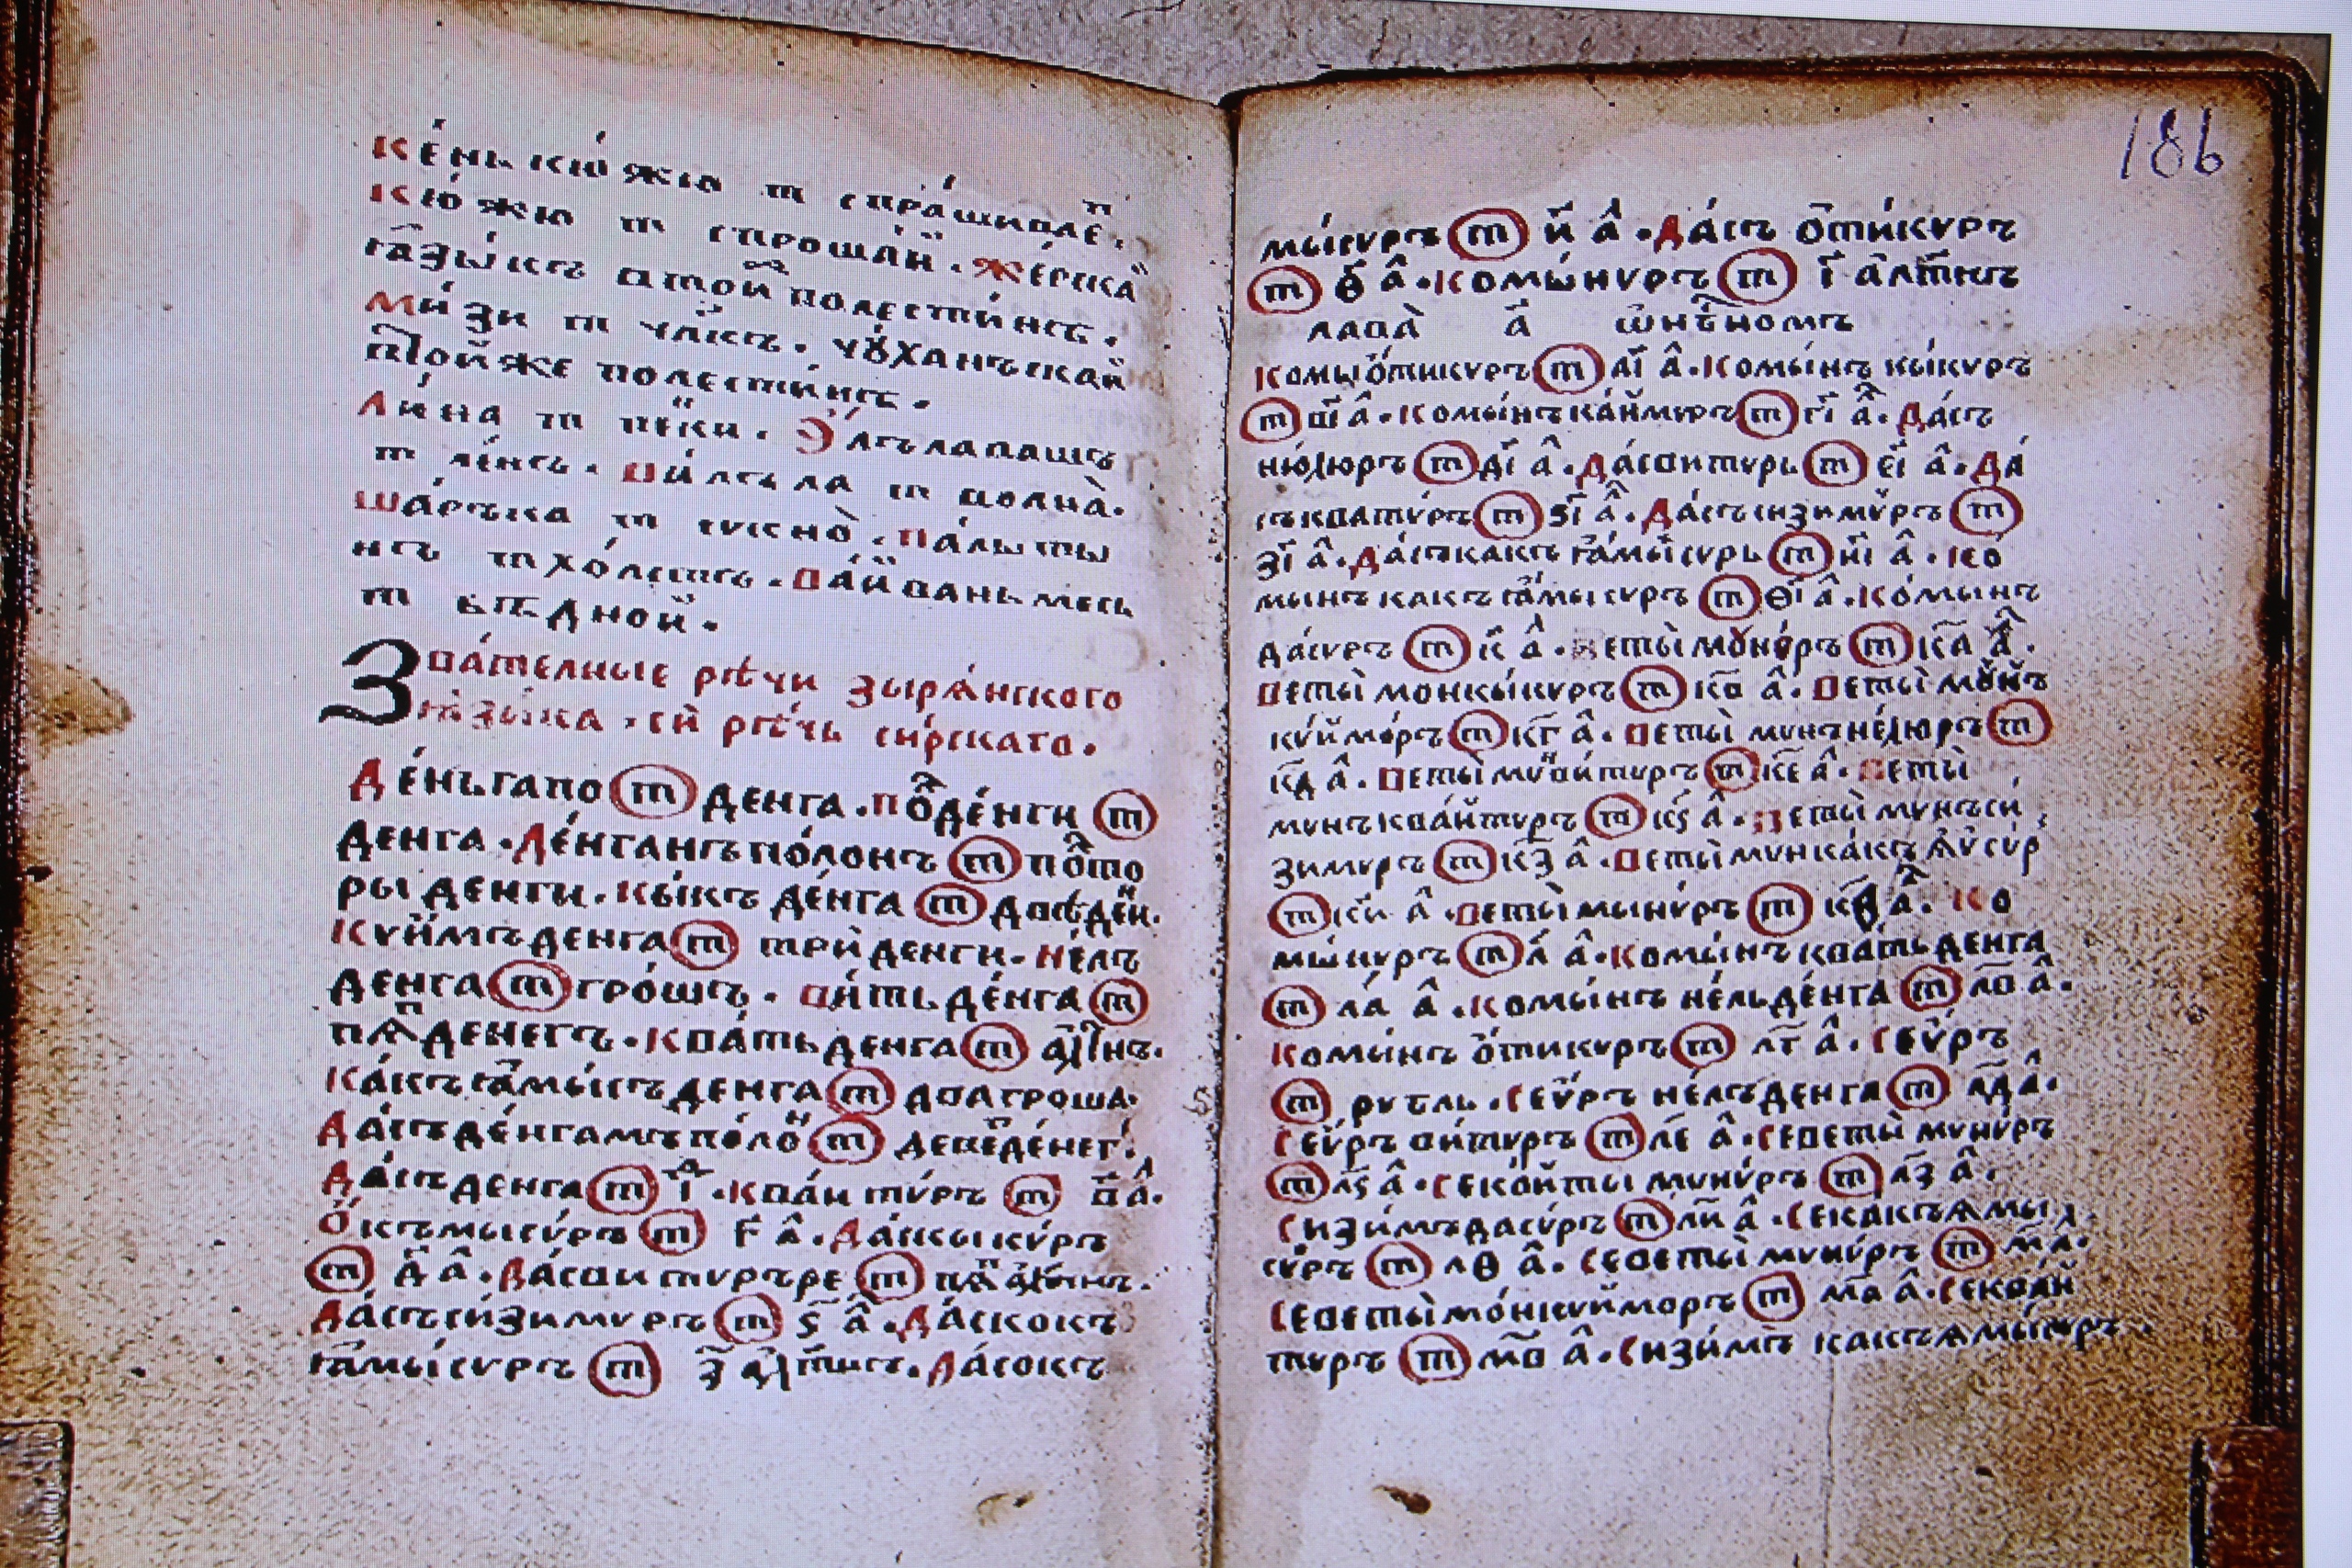 Ке́нь кю́жю т спра́шивае҃ⷧ.
Кю́жю т спроша́й. Же́рскаⷨ
ꙗ҆зы́къ в той полести́нѣ.
Ми́зи т чл҃къ. чꙋ́ханъскай
той же полести́нѣ.
Ли́на т пе́ки. Э́лъ лапашъ
т ле́нъ. Ви́лъ ла т волна̀.
Ша́ръка т сукно̀. Па́лы ты
нъ т хо́лстъ. Ва́йванъ месь
т бѣдной.
Зва́телные рѣ́чи зыря́нского
ꙗ҆зы́ка. сиⷤ рѣ́чь си́рскаго.
Де́ньгапо т денга. поⷧ҇де́нги т
денга. Де́нганъ по́лонъ т поⷧ҇то
ры денги. Кы́къ де́нга т двѣ деⷩ҇.
Куймъ денга т три̇ денги. Не́лъ
денга т гро́шъ. Ви́ть де́нга т
пѧⷮ денегъ. Ква́ть денга т алⷮынъ.
Ка́къ ꙗ́мысъ денга т два гроша.
Да́съ де́нгамъ по́лоⷩ т деве̇ де́нег.
Да́съ денга т і҃ ⷣ. Ква́и ту́ръ т в҃ а҇ⷧ.
О́къмысу́ръ т г҃ а҇ⷧ. Да́скыку́ръ
т д҃ а҇ⷧ. Да́сви туръре т пѧⷮ алтынъ.
Да́съси́зимуръ т ѕ҃ а҇ⷧ. Да́скокъ
ꙗ́мы́суръ т з҃ алтынъ. Да́сокъ
186
мы́суръ т и҃ а҇ⷧ. Да́съ ѻти́куръ
т ѳ҃ а҇ⷧ. Комы́нуръ т і҃ алтⷩъ
лава̀ а҃ ѡнѣ́номъ
Комыѻ́тикуръ т аі҃ а҇ⷧ. Комы́нъ кы́куръ
т ві҃ а҇ⷧ. Комы́нъ ка́ймуръ т гі҃ а҇ⷧ. Да́съ
ню́люръ т ді҃ а҇ⷧ. Да́сви туръ т еі҃ а҇ⷧ. Да́
съквату́ръ т ѕі҃ а҇ⷧ. Да́съсизиму́ръ т
зі҃ а҇ⷧ. Да́съкакъ ꙗ́мы́суръ т иі҃ а҇ⷧ. Ко́
мынъ какъ ꙗ́мысуръ т ѳі҃ а҇ⷧ. Ко́мынъ
да́суръ т к҃ а҇ⷧ. Веты̀ мꙋно́ръ т ка҃ а҇ⷧ.
Веты̀ монкы́куръ т кв҃ а҇ⷧ. Веты̀ мꙋнъ
ку́ймо́ръ т кг҃ а҇ⷧ. Веты̀ мунъне́люръ т
кд҃ а҇ⷧ. Веты̀ муⷩви́туръ т ке҃ а҇ⷧ. Веты̀
мунъ ква́йтуръ т кѕ҃ а҇ⷧ. Веты̀ мунъси́
зимуръ т кз҃ а҇ⷧ. Веты̀ мун ка́къ ѧ̇у̇су́р
т ки҃ а҇ⷧ. Веты̀ мыну́ръ т кѳ҃ а҇ⷧ. Ко
мы́нуръ т л҃ а҇ⷧ. Комы́нъ ква́ть денга
т ла҃ а҇ⷧ. Комы́нъ не́ль де́нга т лв҃ а҇ⷧ.
Комы́нъ ѻ́тикуръ т лг҃ а҇ⷧ. Сеу́ръ
т рубль. Сеу́ръ не́лъ денга т лд҃ а҇ⷧ.
Сеу́ръ ви́туръ т ле҃ а҇ⷧ. Севеты̀ муну́ръ
т лѕ҃ а҇ⷧ. Секо́йты муну́ръ т лз҃ а҇ⷧ.
Сизи́мъдасу́ръ т ли҃ а҇ⷧ. Секакъѧмы
су́ръ т лѳ҃ а҇ⷧ. Севеты̀ муну́ръ т м҃ а҇ⷧ.
Севеты̀ мо́нкуйморъ т ма҃ а҇ⷧ. Секва́й
туръ т мв҃ а҇ⷧ. Сизи́мъ какъѧмы́суръ